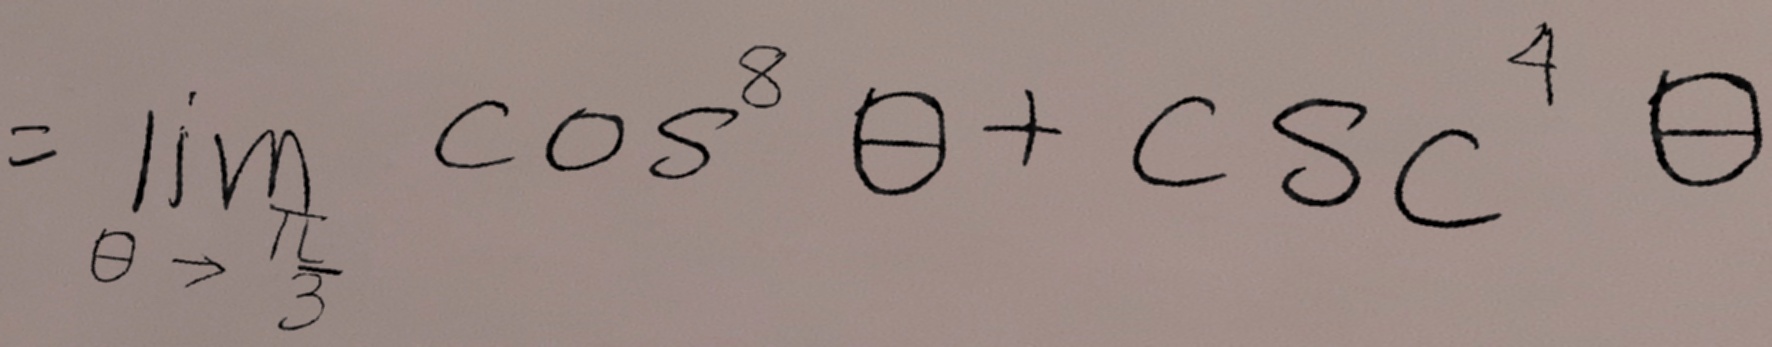 = lim_{θ → π/3} cos^8 θ + csc^4 θ